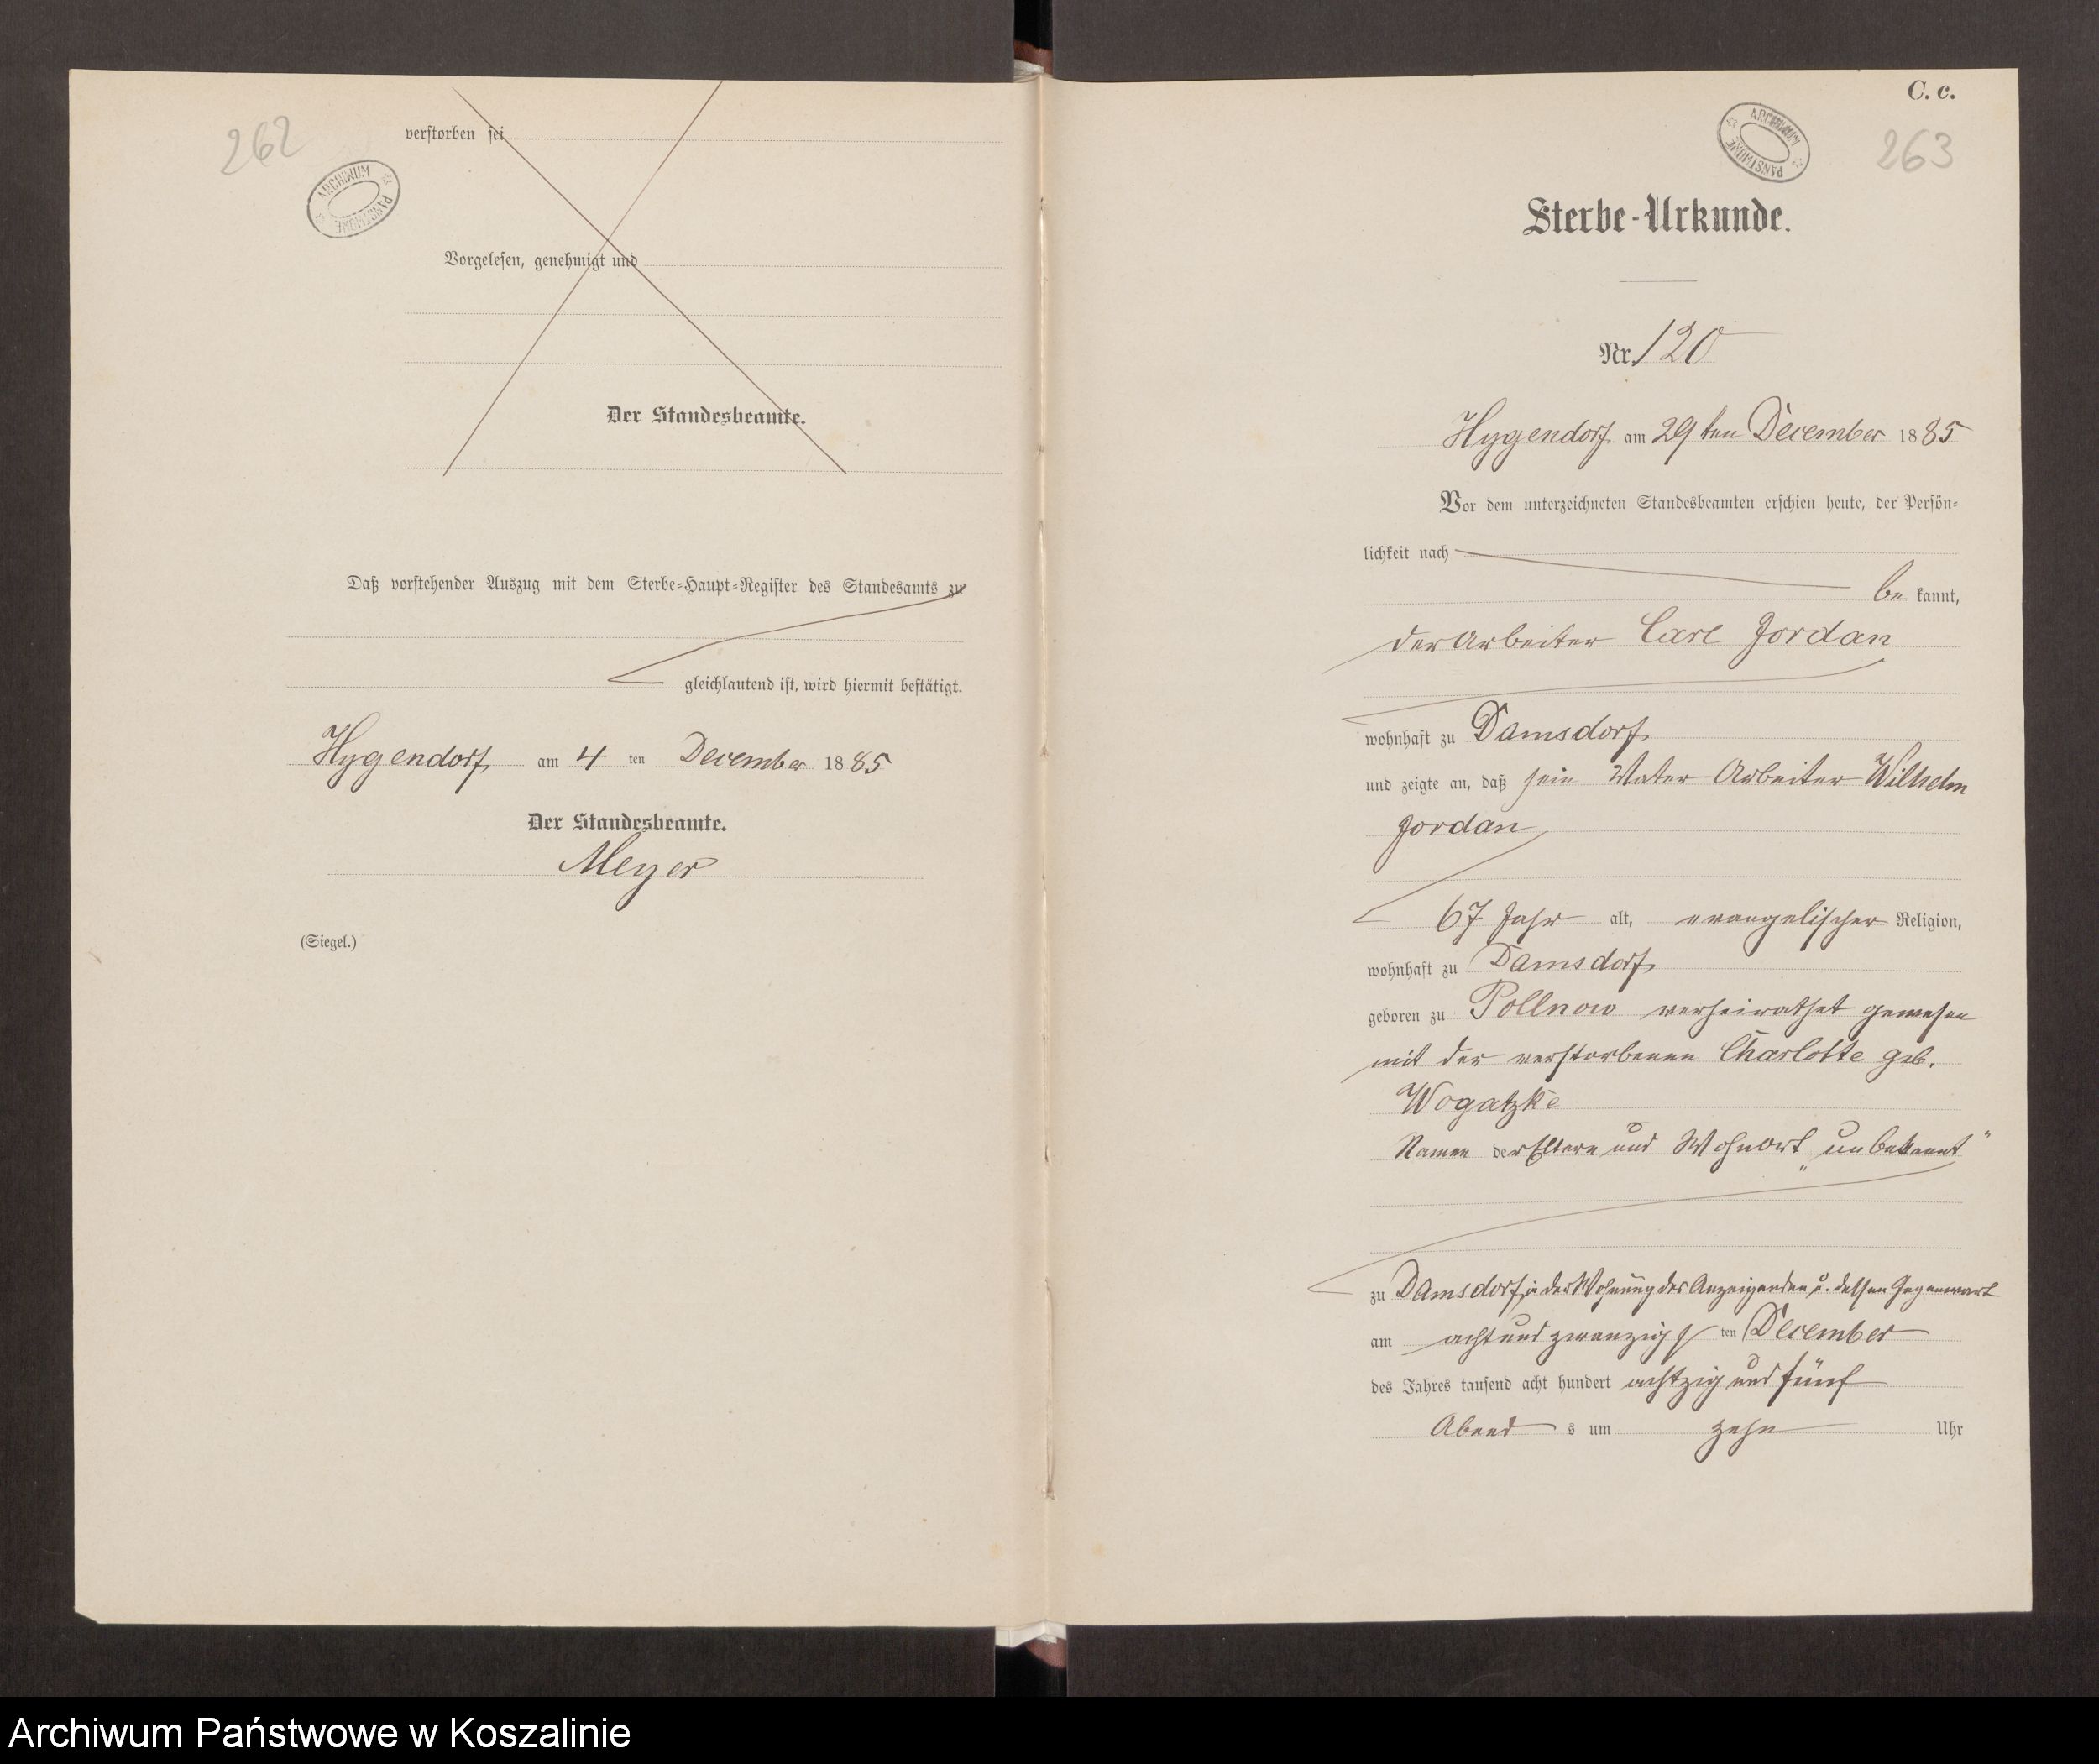 262
ARCHIWUM PAŃSTWOWE
verstorben sei
Vorgelesen, genehmigt und
Der Standesbeamte.
Daß vorstehender Auszug mit dem Sterbe-Haupt-Register des Standesamts zu
gleichlautend ist, wird hiermit bestätigt.
Hygendorf, am 4 ten December 1885
Der Standesbeamte.
Meyer
(Siegel.)
C. c.
ARCHIWUM PAŃSTWOWE
263
Sterbe-Urkunde.
Nr. 120
Hygendorf am 29ten December 1885
Vor dem unterzeichneten Standesbeamten erschien heute, der Persön-
lichkeit nach
be kannt,
der Arbeiter Carl Jordan
wohnhaft zu Damsdorf
und zeigte an, daß sein Vater Arbeiter Wilhelm
Jordan
67 Jahr alt, evangelischer Religion,
wohnhaft zu Damsdorf
geboren zu Pollnow verheirathet gewesen
mit der verstorbenen Charlotte geb.
Wogatzke
Namen der Eltern und Wohnort „unbekannt“
zu Damsdorf, in der Wohnung des Anzeigenden u. dessen Gegenwart
am achtundzwanzigs ten December
des Jahres tausend acht hundert achtzig und fünf
Abend s um zehn Uhr
Archiwum Państwowe w Koszalinie